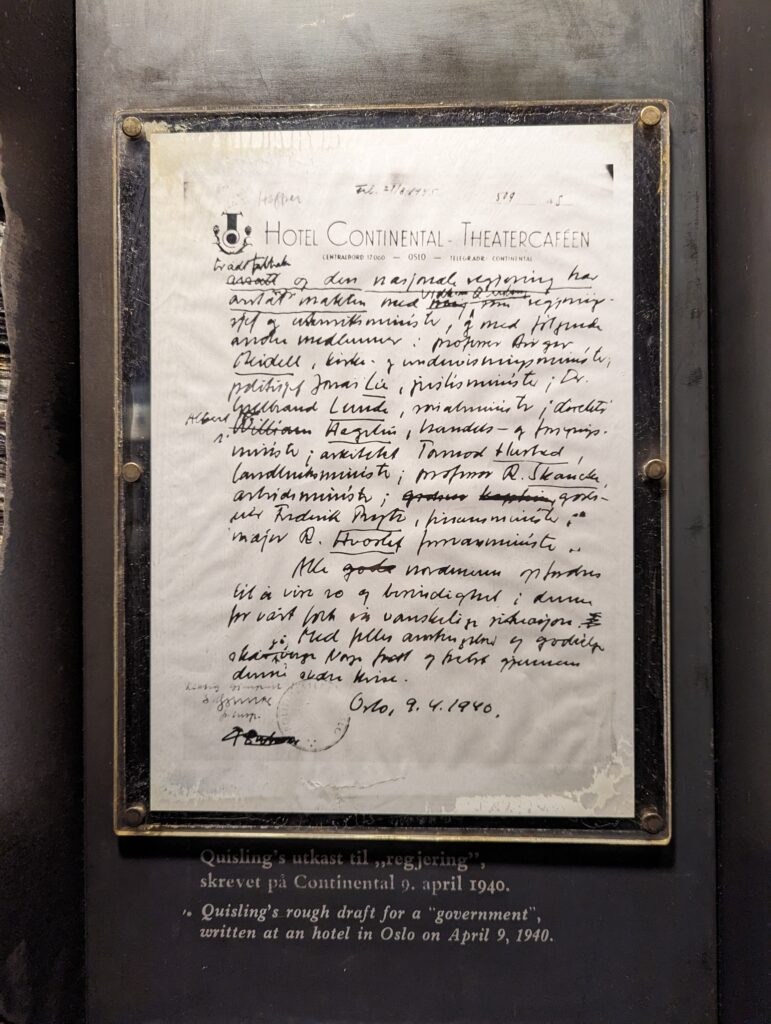 HOTEL CONTINENTAL - THEATERCAFÉEN
CENTRALBORD 17060 — OSLO — TELEGR.ADR: CONTINENTAL
og den nasjonale regjering har
makten med som regjerings-
sjef og utenriksminister, og med følgende
andre medlemmer: professor Birger
Meidell, kirke- og undervisningsminister;
politisjef Jonas Lie, justisminister; Dr.
Gulbrand Lunde, sosialminister; direktør
Albert
William Hagelin, handels- og forsynings-
minister; arkitekt Tormod Hustad,
landbruksminister; professor R. Skancke,
arbeidsminister; gods-
eier Frederik Prytz, finansminister;
major R. Hvoslef forsvarsminister.
Alle nordmenn oppfordres
til å vise ro og besindighet i denne
for vårt folk så vanskelige situasjon.
Med felles anstrengelse og godvilje
skal Norge og frelst gjennem
denne krise.
Oslo, 9.4.1940.
Quisling's utkast til „regjering”,
skrevet på Continental 9. april 1940.
Quisling's rough draft for a "government",
written at an hotel in Oslo on April 9, 1940.